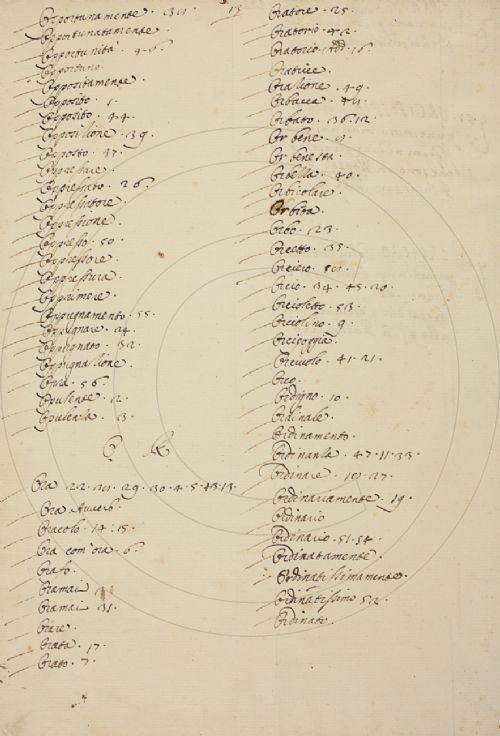 Opportunamente. 13
Opportunatamente.
Opportunità.
Opportuno.
Oppositamente.
Opposito. 1.
Opposito. 44.
Opposizione. 39.
Opposto. 37.
Oppressare.
Oppressato. 26.
Oppressatore.
Oppressione.
Oppresso. 50.
Oppressore.
Oppressura.
Opprimere.
Oppugnamento. 55.
Oppugnare. 24.
Oppugnato. 32.
Oppugnazione.
Opra. 56.
Opulente. 2.
Opulenza. 3.
O R
Ora 22. 29. 30. 4. 5. 43. 13.
Ora Avverb.
Oracolo. 14. 15.
Ora com'ora. 6.
Orafo.
Oramai
Oramai 31.
Orare.
Orata. 17.
Orato. 7.
Oratore. 25.
Oratorio. 42.
Oratorio. 16.
Oratrice.
Orazione. 49.
Orbacca.
Orbato. 36. 12.
Or bene.
Or ben esta.
Orbella. 40.
Orbicolare.
Orbita.
Orbo. 23.
Orcetto. 35.
Orciero.
Orcio. 34. 45. 20.
Orcioletto. 53.
Orciolino. 9.
Orciuolo. 41. 21.
Orco.
Ordigno. 10.
Ordinale.
Ordinamento.
Ordinanza. 47. 11. 33.
Ordinare. 27.
Ordinariamente. 19.
Ordinario
Ordinario. 51. 54.
Ordinatamente.
Ordinatissimamente.
Ordinatissimo 52.
Ordinato.